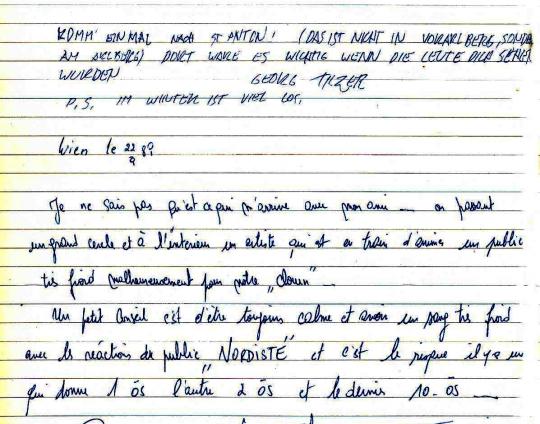 KOMM' EINMAL NACH ST ANTON! (DAS IST NICHT IN VORARLBERG, SONDERN
AM ARLBERG) DORT WÄRE ES WICHTIG WENN DIE LEUTE DICH SEHEN
WÜRDEN GEORG
P.S. IM WINTER IST VIEL LOS.
Wien le 22 9 89
Je ne sais pas qu'est ce qui m'arrive avec mon ami ... en passant
un grand cercle et à l'intérieur un artiste qui est en train d'animer un public
très froid malheureusement pour notre "clown"
Un petit conseil c'est d'être toujours calme et avoir un sang très froid
avec les réactions de public "NORDISTE" et c'est le risque il y a un
qui donne 1 ös l'autre 2 ös et le dernier 10-ös